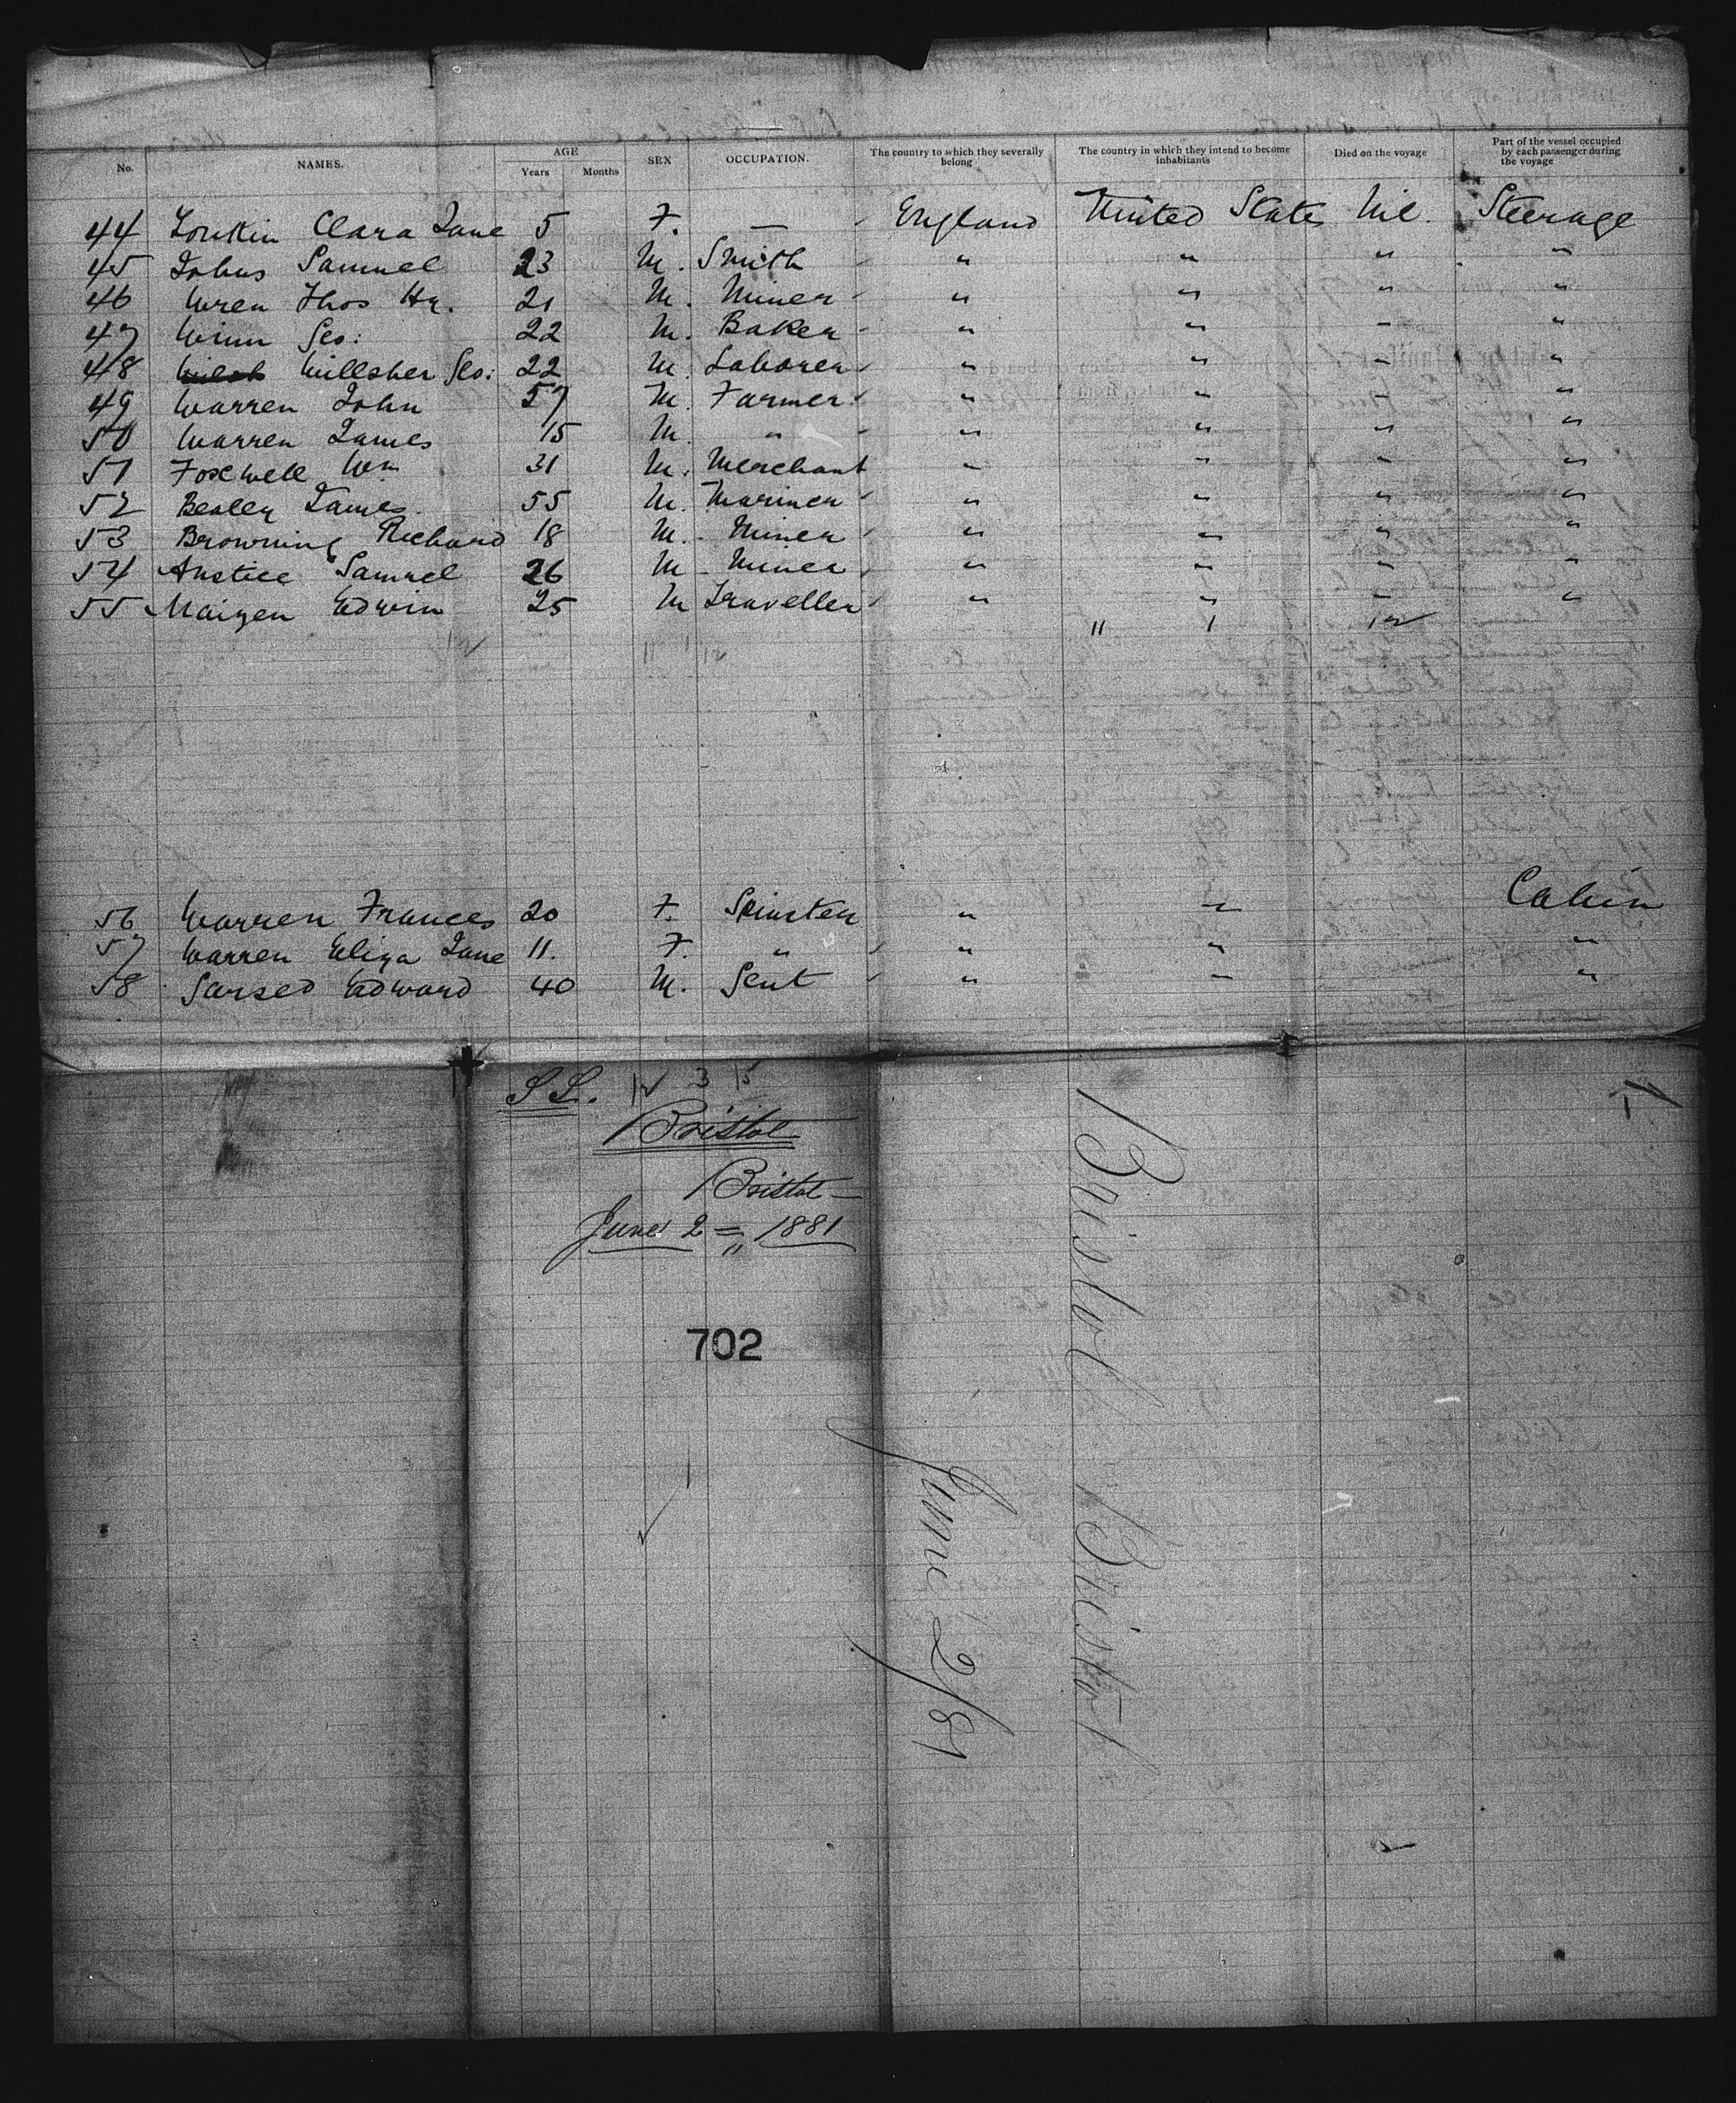 No. NAMES. AGE Years Months SEX OCCUPATION. The country to which they severally belong The country in which they intend to become inhabitants Died on the voyage Part of the vessel occupied by each passenger during the voyage
44 Tonkin Clara Jane 5 F. — England United States Nil. Steerage
45 Johns Samuel 23 M. Smith " " " "
46 Wren Thos Hy. 21 M. Miner " " " "
47 Winn Geo: 22 M. Baker " " " "
48 Willsher Geo: 22 M. Laborer " " " "
49 Warren John 57 M. Farmer " " " "
50 Warren James 15 M. " " " " "
51 Foxwell Wm 31 M. Merchant " " " "
52 Bealey James 55 M. Mariner " " " "
53 Browning Richard 18 M. Miner " " " "
54 Anstice Samuel 26 M Miner " " " "
55 Maizen Edwin 25 M Traveller " " " "
11 1 12
56 Warren Frances 20 F. Spinster " " Cabin
57 Warren Eliza Jane 11. F. " " " "
58 Garsed Edward 40 M. Gent " " "
SS. 12 3 15
Bristol
Bristol
June 2 = 1881
702
Bristol Bristol
June 2/81